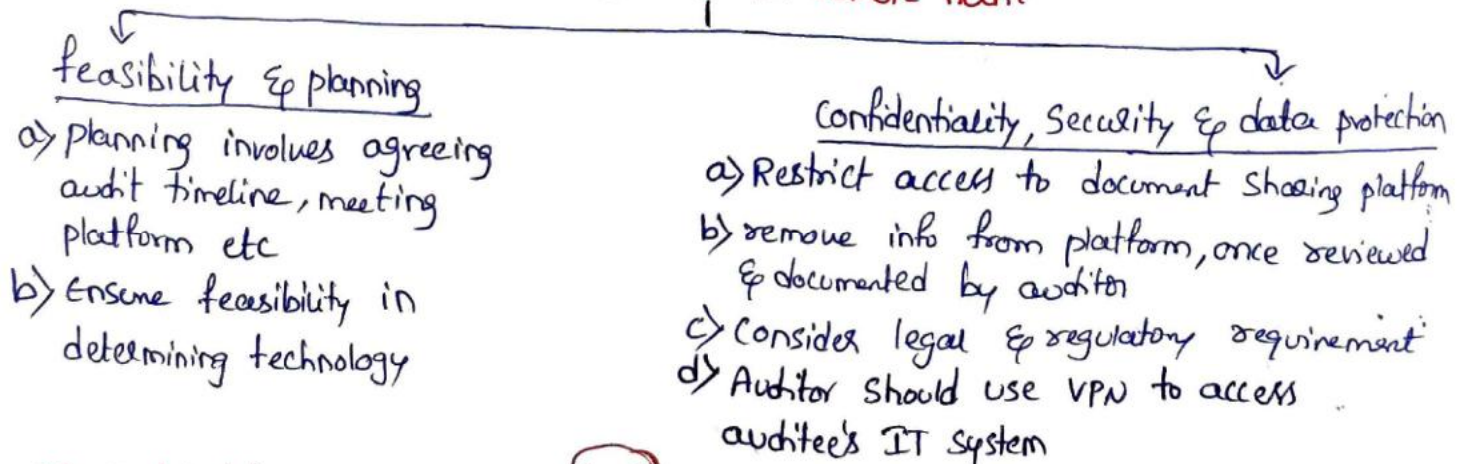 feasibility & planning
a) planning involves agreeing
audit timeline, meeting
platform etc
b) Ensure feasibility in
determining technology
Confidentiality, Security & data protection
a) Restrict access to document sharing platform
b) remove info from platform, once reviewed
& documented by auditor
c) Consider legal & regulatory requirement
d) Auditor should use VPN to access
auditee's IT system